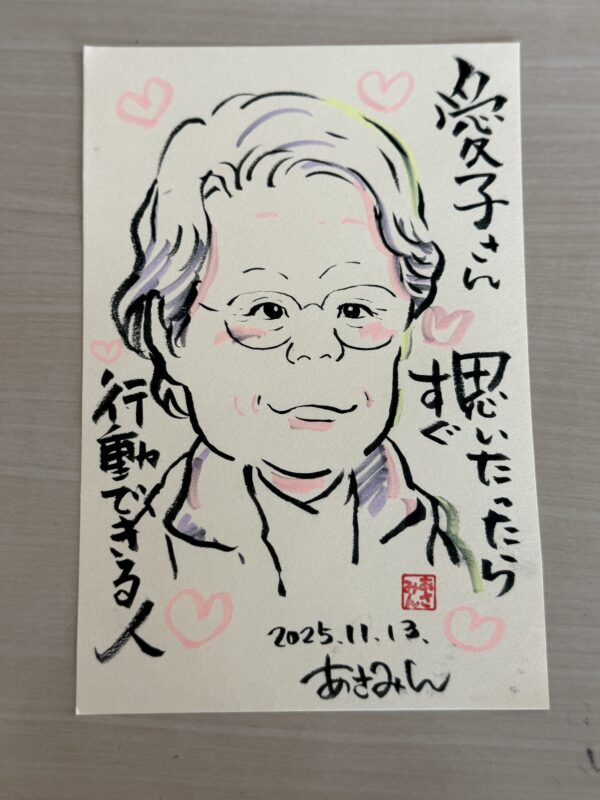 愛子さん
思いたったら
すぐ
行動できる人
2025.11.13.
あさみん
あさ
みん